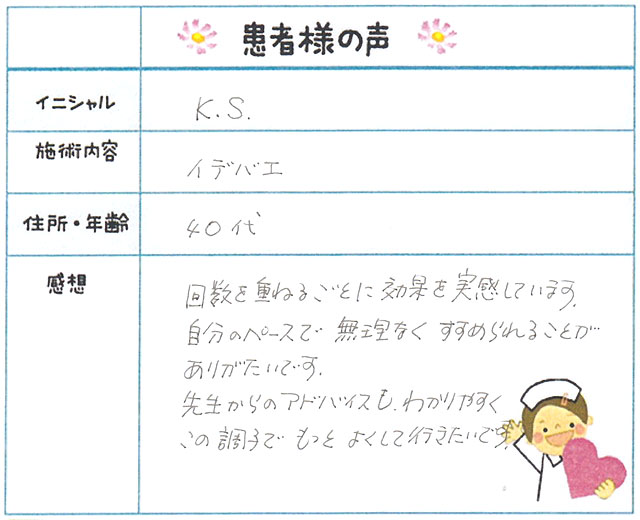 患者様の声
イニシャル K.S.
施術内容 イデバエ
住所・年齢 40代
感想
回数を重ねるごとに効果を実感しています。
自分のペースで無理なくすすめられることが
ありがたいです。
先生からのアドバイスも、わかりやすく
この調子でもっとよくして行きたいです。